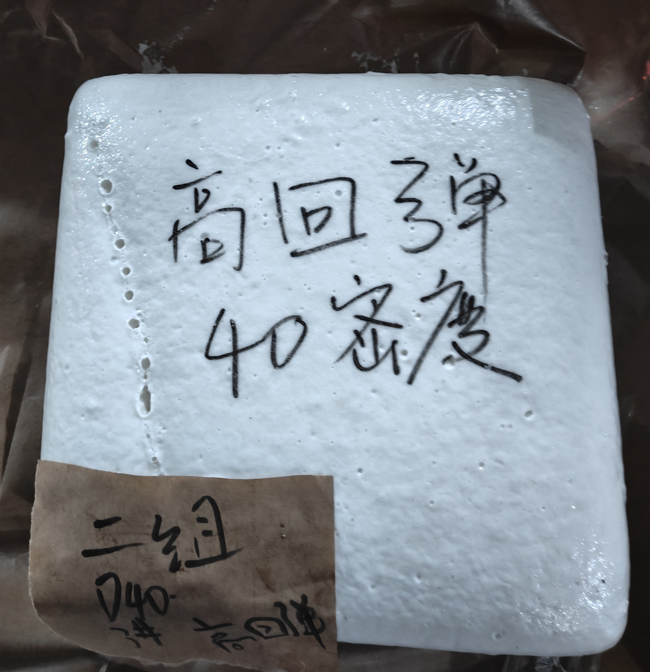 高回弹
40密度
二组
D40
高回弹